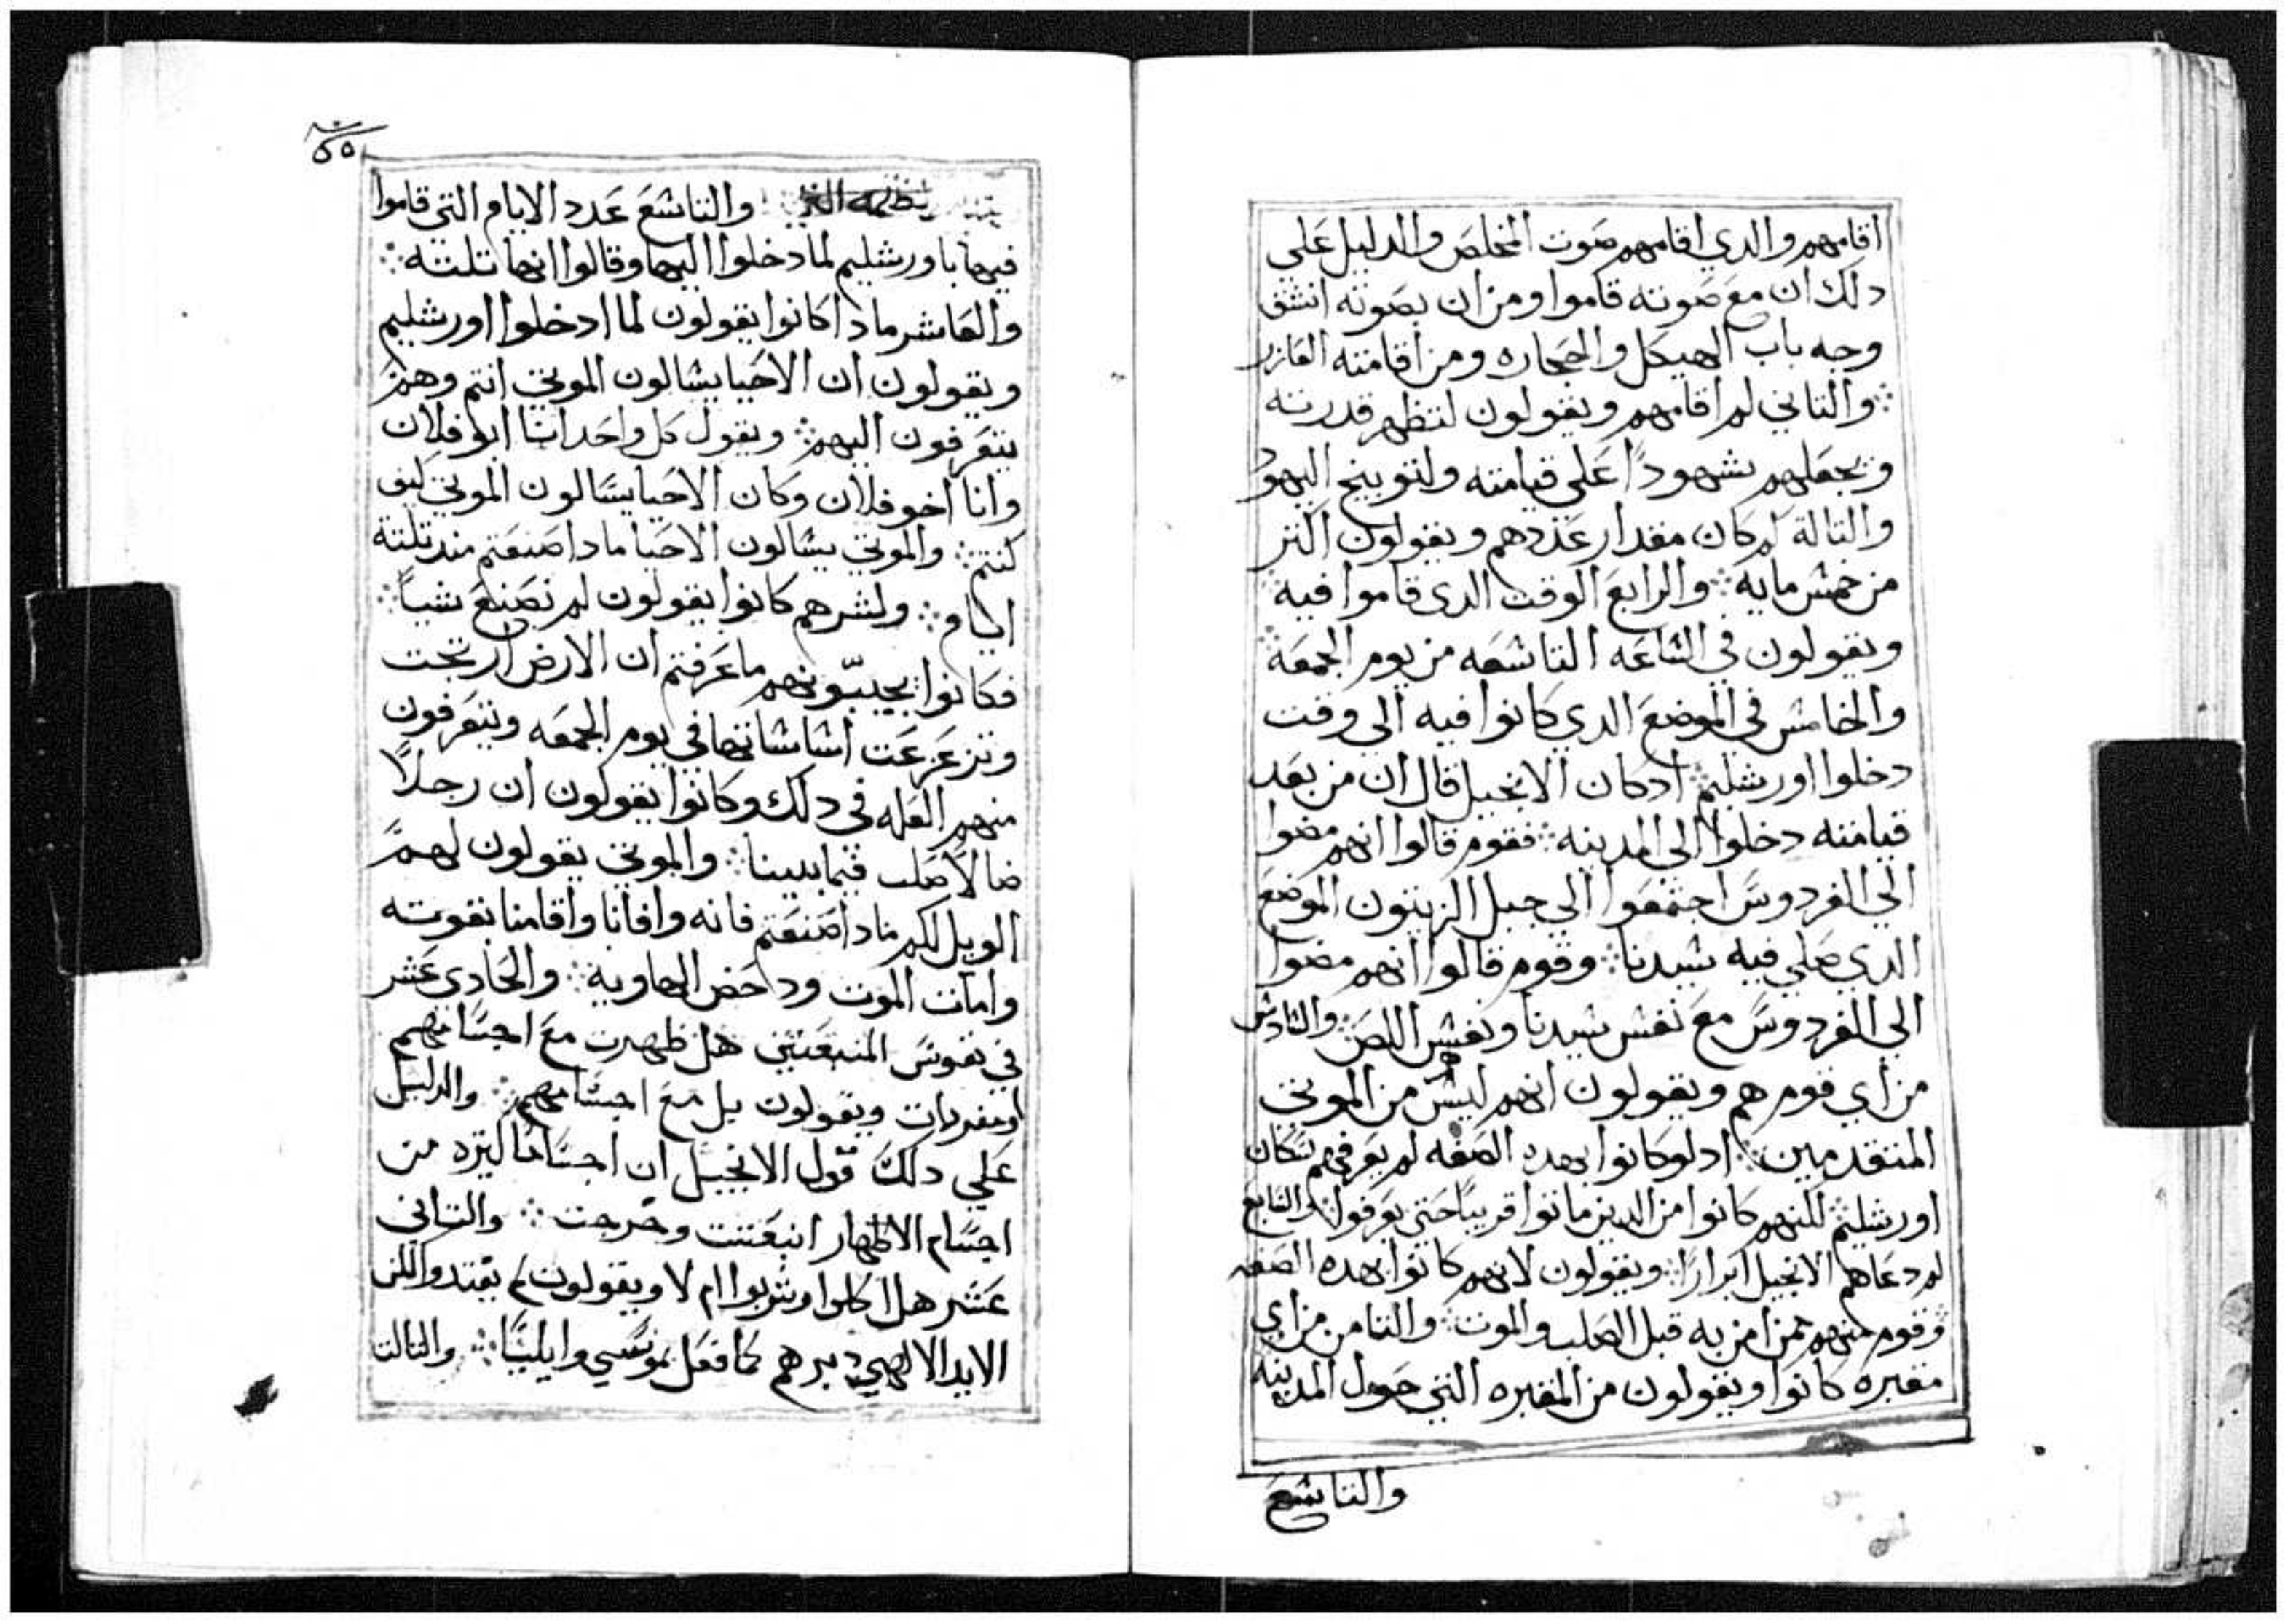 اقامهم والدي اقامهم صوت المخلص والدليل علي
دلك ان مع صوته قاموا ومن ان بصوته انشق
وجه باب الهيكل والحجاره ومن اقامته العازر
والتاني لم اقامهم ويقولون لتظهر قدرته
ويجعلهم شهودًا علي قيامته ولتوبيخ اليهود
والتالة لم كان مقدار عددهم ويقولون اكتر
من خمس مايه ⁘ والرابع الوقت الدي قاموا فيه
ويقولون في الساعه التاسعه من يوم الجمعه ⁘
والخامس في الموضع الدي كانوا فيه الي وقت
دخلوا اورشليم ⁘ ادكان الانجيل قال ان من بعد
قيامته دخلوا الي المدينه ⁘ فقوم قالوا انهم مضوا
الي الفردوس اجتمعوا الي جبل الزيتون الموضع
الدي صلي فيه سيدنا ⁘ وقوم قالوا انهم مضوا
الي الفردوس مع نفس سيدنا ونفس اللص ⁘ والسادس
من اي قوم هم ويقولون انهم ليس من الموتي
المتقدمين ⁘ ادلوكانوا بهده الصفه لم يعرفهم سكان
اورشليم ⁘ لكنهم كانوا من الدين ماتوا قريبًا حتي يعرفوا ⁘ والسابع
لم دعاهم الانجيل ابرارًا ⁘ ويقولون لانهم كانوا بهده الصفه
وقوم منهم ممن امن به قبل الصلب والموت ⁘ والتامن من اي
مقبره كانوا ويقولون من المقبره التي حول المدينه
والتاسع
٥٥
والتاسع عدد الايام التي قاموا
فيها باورشليم لما دخلوا اليها وقالوا انها تلتة ⁘
والعاشر مادا كانوا يقولون لما ادخلوا اورشليم
ويقولون ان الاحيا يسالون الموتي انتم وهم
يتعرفون اليهم ⁘ ويقول كل واحد انا ابو فلان
وانا اخو فلان وكان الاحيا يسالون الموتي كيف
كنتم ⁘ والموتي يسالون الاحيا مادا صنعتم مند تلتة
ايام ⁘ ولشرهم كانوا يقولون لم نصنع شياً ⁘
فكانوا يجيبونهم ما عرفتم ان الارض ارتجت
وتزعزعت اساساتها في يوم الجمعه ويتعرفون
منهم العله في دلك وكانوا يقولون ان رجلاً
ضالاً صلب فيما بيننا ⁘ والموتي يقولون لهم
الويل لكم مادا صنعتم فانه وافانا واقامنا بقوته
وامات الموت وداحض الهاوية ⁘ والحادي عشر
في نفوس المنبعتين هل ظهرت مع اجسامهم
او مفردات ويقولون بل مع اجسامهم ⁘ والدليل
علي دلك قول الانجيل ان اجسامًا كتيره من
اجسام الاطهار انبعتت وخرجت ⁘ والتاني
عشر هل اكلوا وشربوا ام لا ويقولون لم يغتدوا لكن
الايد الالهي دبرهم كما فعل بموسي وايليا ⁘ والتالت